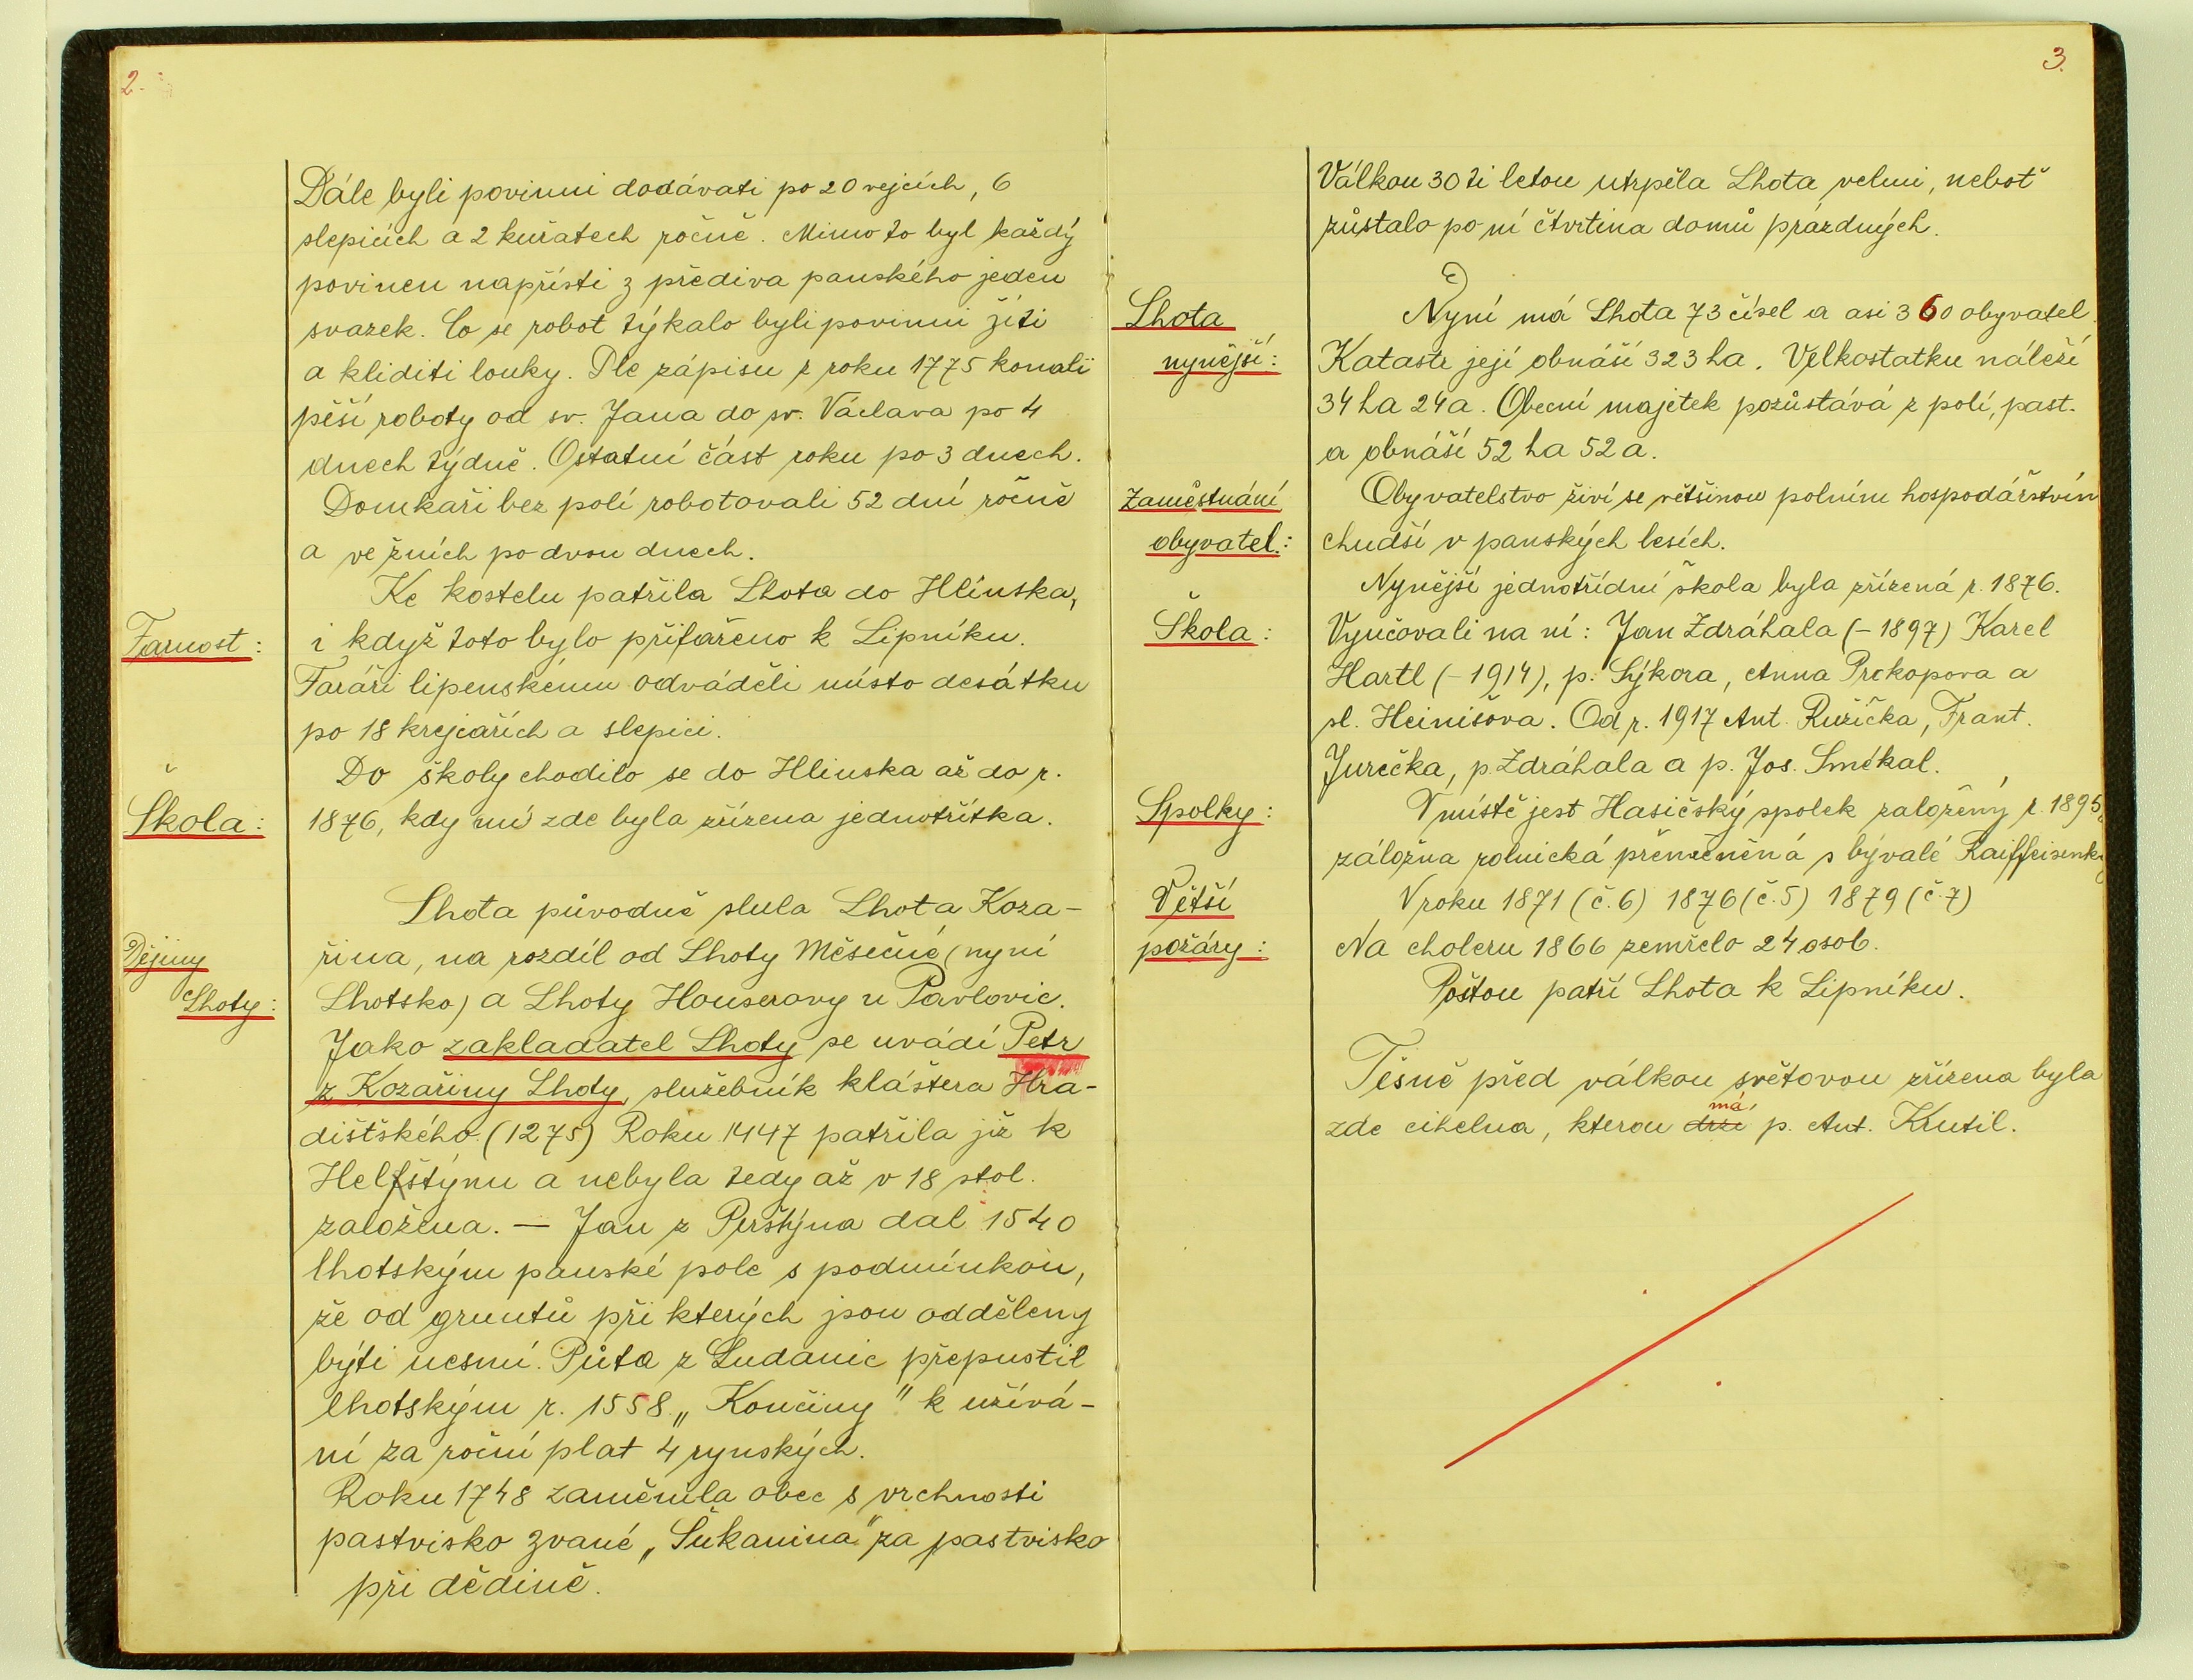 2.
Dále byli povinni dodávati po 20 vejcích, 6
slepicích a 2 kuřatech ročně. Mimo to byl každý
povinen napřísti z přediva panského jeden
svazek. Co se robot týkalo byli povinni žíti
a kliditi louky. Dle zápisu z roku 1775 konali
pěší roboty od sv. Jana do sv. Václava po 4
dnech týdně. Ostatní část roku po 3 dnech.
Domkaři bez polí robotovali 52 dní ročně
a ve žních po dvou dnech.
Ke kostelu patřila Lhota do Hlinska,
Farnost:
i když toto bylo přifařeno k Lipníku.
Faráři lipenskému odváděli místo desátku
po 18 krejcařích a slepici.
Do školy chodilo se do Hlinska až do r.
Škola:
1876, kdy mí zde byla zřízena jednotřítka.
Lhota původně slula Lhota Koza-
Dějiny
řina, na rozdíl od Lhoty Měsečné (nyní
Lhoty:
Lhotsko) a Lhoty Houserovy u Pavlovic.
Jako zakladatel Lhoty se uvádí Petr
z Kozařiny Lhoty, služebník kláštera Hra-
dištského. (1275) Roku 1447 patřila již k
Helfštýnu a nebyla tedy až v 18 stol.
založena. — Jan z Perštýna dal 1540
lhotským panské pole s podmínkou,
že od gruntů při kterých jsou odděleny
býti nesmí. Půta z Ludanic přepustil
lhotským r. 1558 „Končiny" k užívá-
ní za roční plat 4 rynských.
Roku 1748 zaměnila obec s vrchnosti
pastvisko zvané „Šukanina" za pastvisko
při dědině.
3.
Válkou 30 ti letou utrpěla Lhota velmi, neboť
zůstalo po ní čtvrtina domů prázdných.
Lhota
Nyní má Lhota 73 čísel a asi 360 obyvatel.
nynější:
Katastr její obnáší 323 ha. Velkostatku náleží
34 ha 24 a. Obecní majetek pozůstává z polí, past.
a obnáší 52 ha 52 a.
Zaměstnání
Obyvatelstvo živí se většinou polním hospodářstvím
obyvatel.:
chudší v panských lesích.
Nynější jednotřídní škola byla zřízená r. 1876.
Škola:
Vyučovali na ní: Jan Zdráhala (– 1897) Karel
Hartl (– 1914), p. Sýkora, Anna Prokopova a
sl. Heinišova. Od r. 1917 Ant. Ružička, Frant.
Jurečka, p. Zdráhala a p. Jos. Smékal.
Spolky:
V místě jest Hasičský spolek založený r. 1895,
záložna rolnická přeměněná s bývalé Raiffeisenky
Větší
V roku 1871 (č. 6) 1876 (č. 5) 1879 (č. 7)
požáry:
Na choleru 1866 zemřelo 24 osob.
Poštou patří Lhota k Lipníku.
Těsně před válkou světovou zřízena byla
má
zde cihelna, kterou drží p. Ant. Krutil.